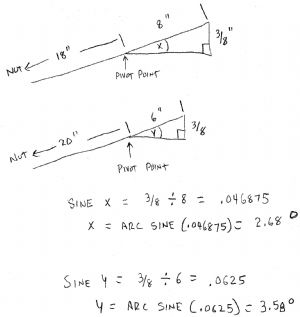 8"
18"
3/8"
X
NUT
PIVOT POINT
6"
20"
3/8
Y
NUT
PIVOT POINT
SINE X = 3/8 ÷ 8 = .046875
X = ARC SINE (.046875) = 2.68°
SINE Y = 3/8 ÷ 6 = .0625
Y = ARC SINE (.0625) = 3.58°